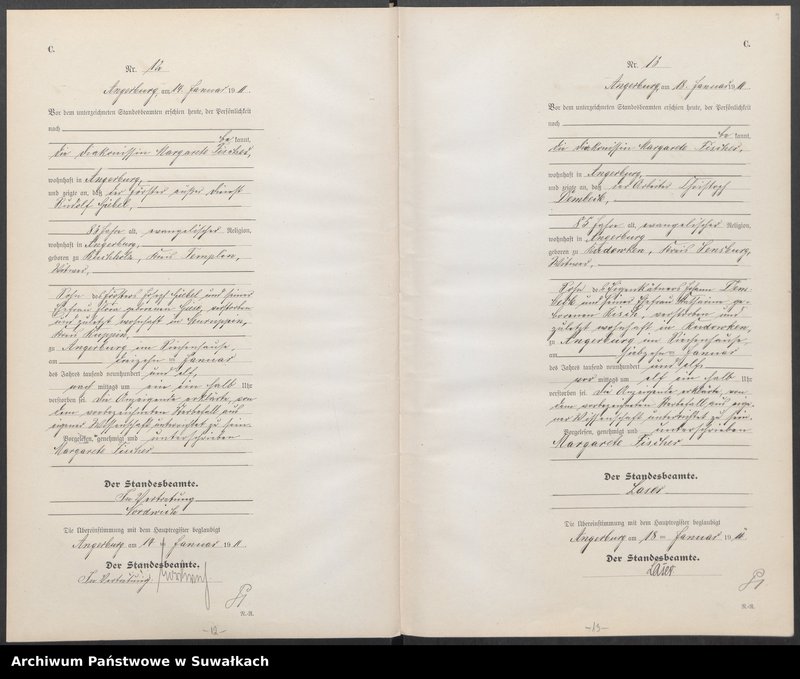 C.
Nr. 12
Angerburg, am 14. Januar 1911.
Vor dem unterzeichneten Standesbeamten erschien heute, der Persönlichkeit
nach
be kannt,
die Diakonissin Margarete Fischer,
wohnhaft in Angerburg,
und zeigte an, daß der Förster außer Dienst
Rudolf
83 Jahre alt, evangelischer Religion,
wohnhaft in Angerburg,
geboren zu Buchholz, Kreis Templin,
Witwer,
Sohn des Försters Josef und seiner
Ehefrau geborenen verstorben
und zuletzt wohnhaft in Neuruppin,
Kreis Ruppin,
zu Angerburg im Siechenhause,
am dreizehnten Januar
des Jahres tausend neunhundert und elf,
nach mittags um ein ein halb Uhr
verstorben sei. Die Anzeigende erklärte, von
dem vorbezeichneten Sterbefall aus
eigener Wissenschaft unterrichtet zu sein.
Vorgelesen, genehmigt und unterschrieben
Margarete Fischer
Der Standesbeamte.
In Vertretung
Nordwich
Die Übereinstimmung mit dem Hauptregister beglaubigt
Angerburg am 14 ten Januar 1911.
Der Standesbeamte.
In Vertretung
N.-R.
-12-
C.
Nr. 13
Angerburg, am 18. Januar 1911.
Vor dem unterzeichneten Standesbeamten erschien heute, der Persönlichkeit
nach
be kannt,
die Diakonissin Margarete Fischer,
wohnhaft in Angerburg,
und zeigte an, daß der Arbeiter Christoph
Dembeck,
85 Jahre alt, evangelischer Religion,
wohnhaft in Angerburg
geboren zu Rudowken, Kreis Sensburg,
Witwer,
Sohn des Eigenkätners Johann Dem-
beck und seiner Ehefrau Katharine ge-
borenen verstorben und
zuletzt wohnhaft in Rudowken,
zu Angerburg im Siechenhause,
am siebzehnten Januar
des Jahres tausend neunhundert und elf
vor mittags um elf ein halb Uhr
verstorben sei. Die Anzeigende erklärte, von
dem vorbezeichneten Sterbefall aus eige-
ner Wissenschaft unterrichtet zu sein.
Vorgelesen, genehmigt und unterschrieben
Margarete Fischer
Der Standesbeamte.
Laser
Die Übereinstimmung mit dem Hauptregister beglaubigt
Angerburg am 18 ten Januar 1911
Der Standesbeamte.
Laser
N.-R.
-13-
Archiwum Państwowe w Suwałkach